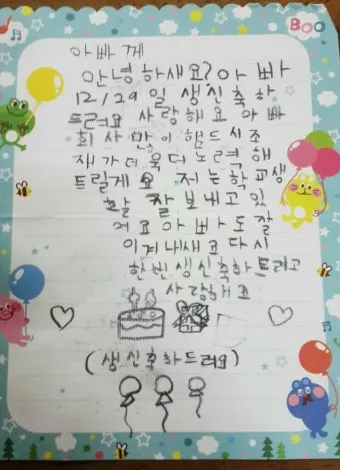 BOO
아빠께
안녕하새요? 아빠
12/29일 생신축하
드려요 사랑해요 아빠
회사 많이 힘드시조
재가 더욱 더 노력해
드릴게요 저는 학교생
활 잘 보내고 있
어요 아빠도 잘
이겨내새요 다시
한번 생신축하드리고
사랑해요
(생신축하드려요)